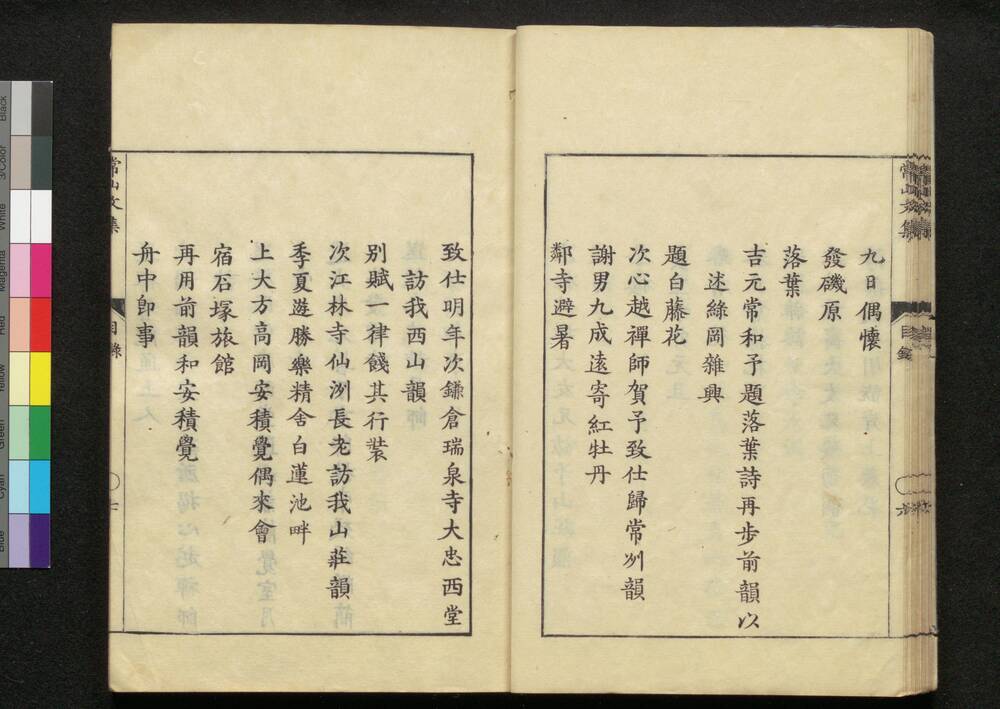 九日偶懷
發磯原
落葉
吉元常和予題落葉詩再步前韻以
述綠岡雜興
題白藤花
次心越禪師賀予致仕歸常州韻
謝男九成遠寄紅牡丹
鄰寺避暑
常山文集
目錄
致仕明年次鎌倉瑞泉寺大忠西堂
訪我西山韻
別賦一律餞其行裝
次江林寺仙洌長老訪我山莊韻
季夏遊勝樂精舍白蓮池畔
上大方高岡安積覺偶來會
宿石塚旅館
再用前韻和安積覺
舟中卽事
常山文集
目錄
七
Black
3/Color
White
Magenta
Red
Yellow
Green
Cyan
Blue